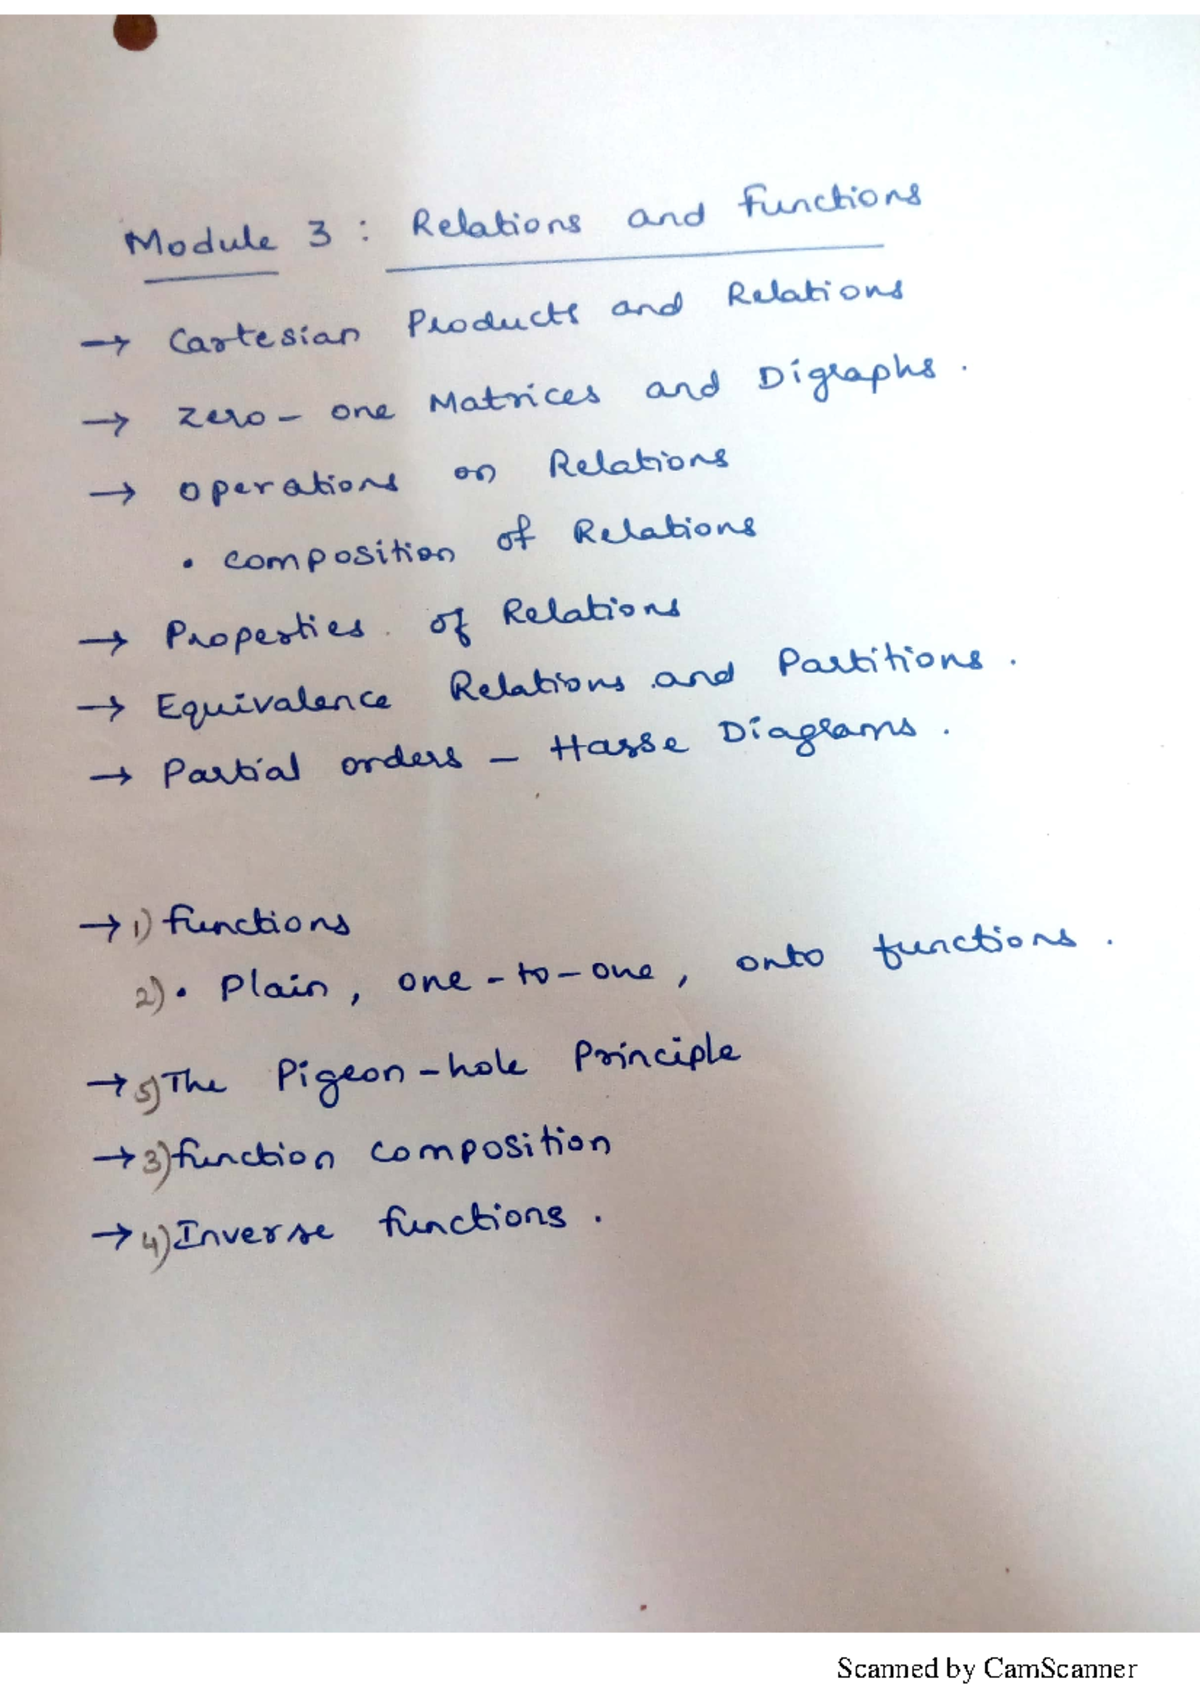 Module 3 : Relations and Functions
→ Cartesian Products and Relations
→ Zero - one Matrices and Digraphs .
→ Operations on Relations
• Composition of Relations
→ Properties of Relations
→ Equivalence Relations and Partitions .
→ Partial orders - Hasse Diagrams .
→ 1) functions
2) • Plain , one - to - one , onto functions .
→ 5) The Pigeon - hole Principle
→ 3) function composition
→ 4) Inverse functions .
Scanned by CamScanner